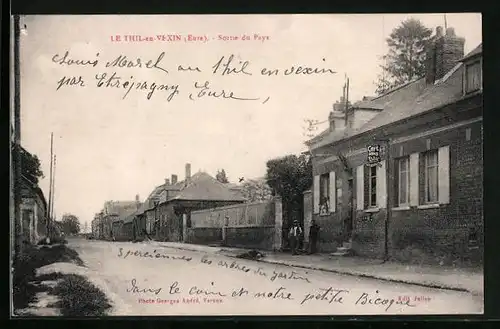 LE THIL-en-VEXIN (Eure). - Sortie du Pays
Louis Morel au Thil en vexin
par Etrépagny (Eure)
Café
3 perciennes les arbres du jardin
dans le coin et notre petite Bicoque
Photo Georges André, Vernon
Edit.